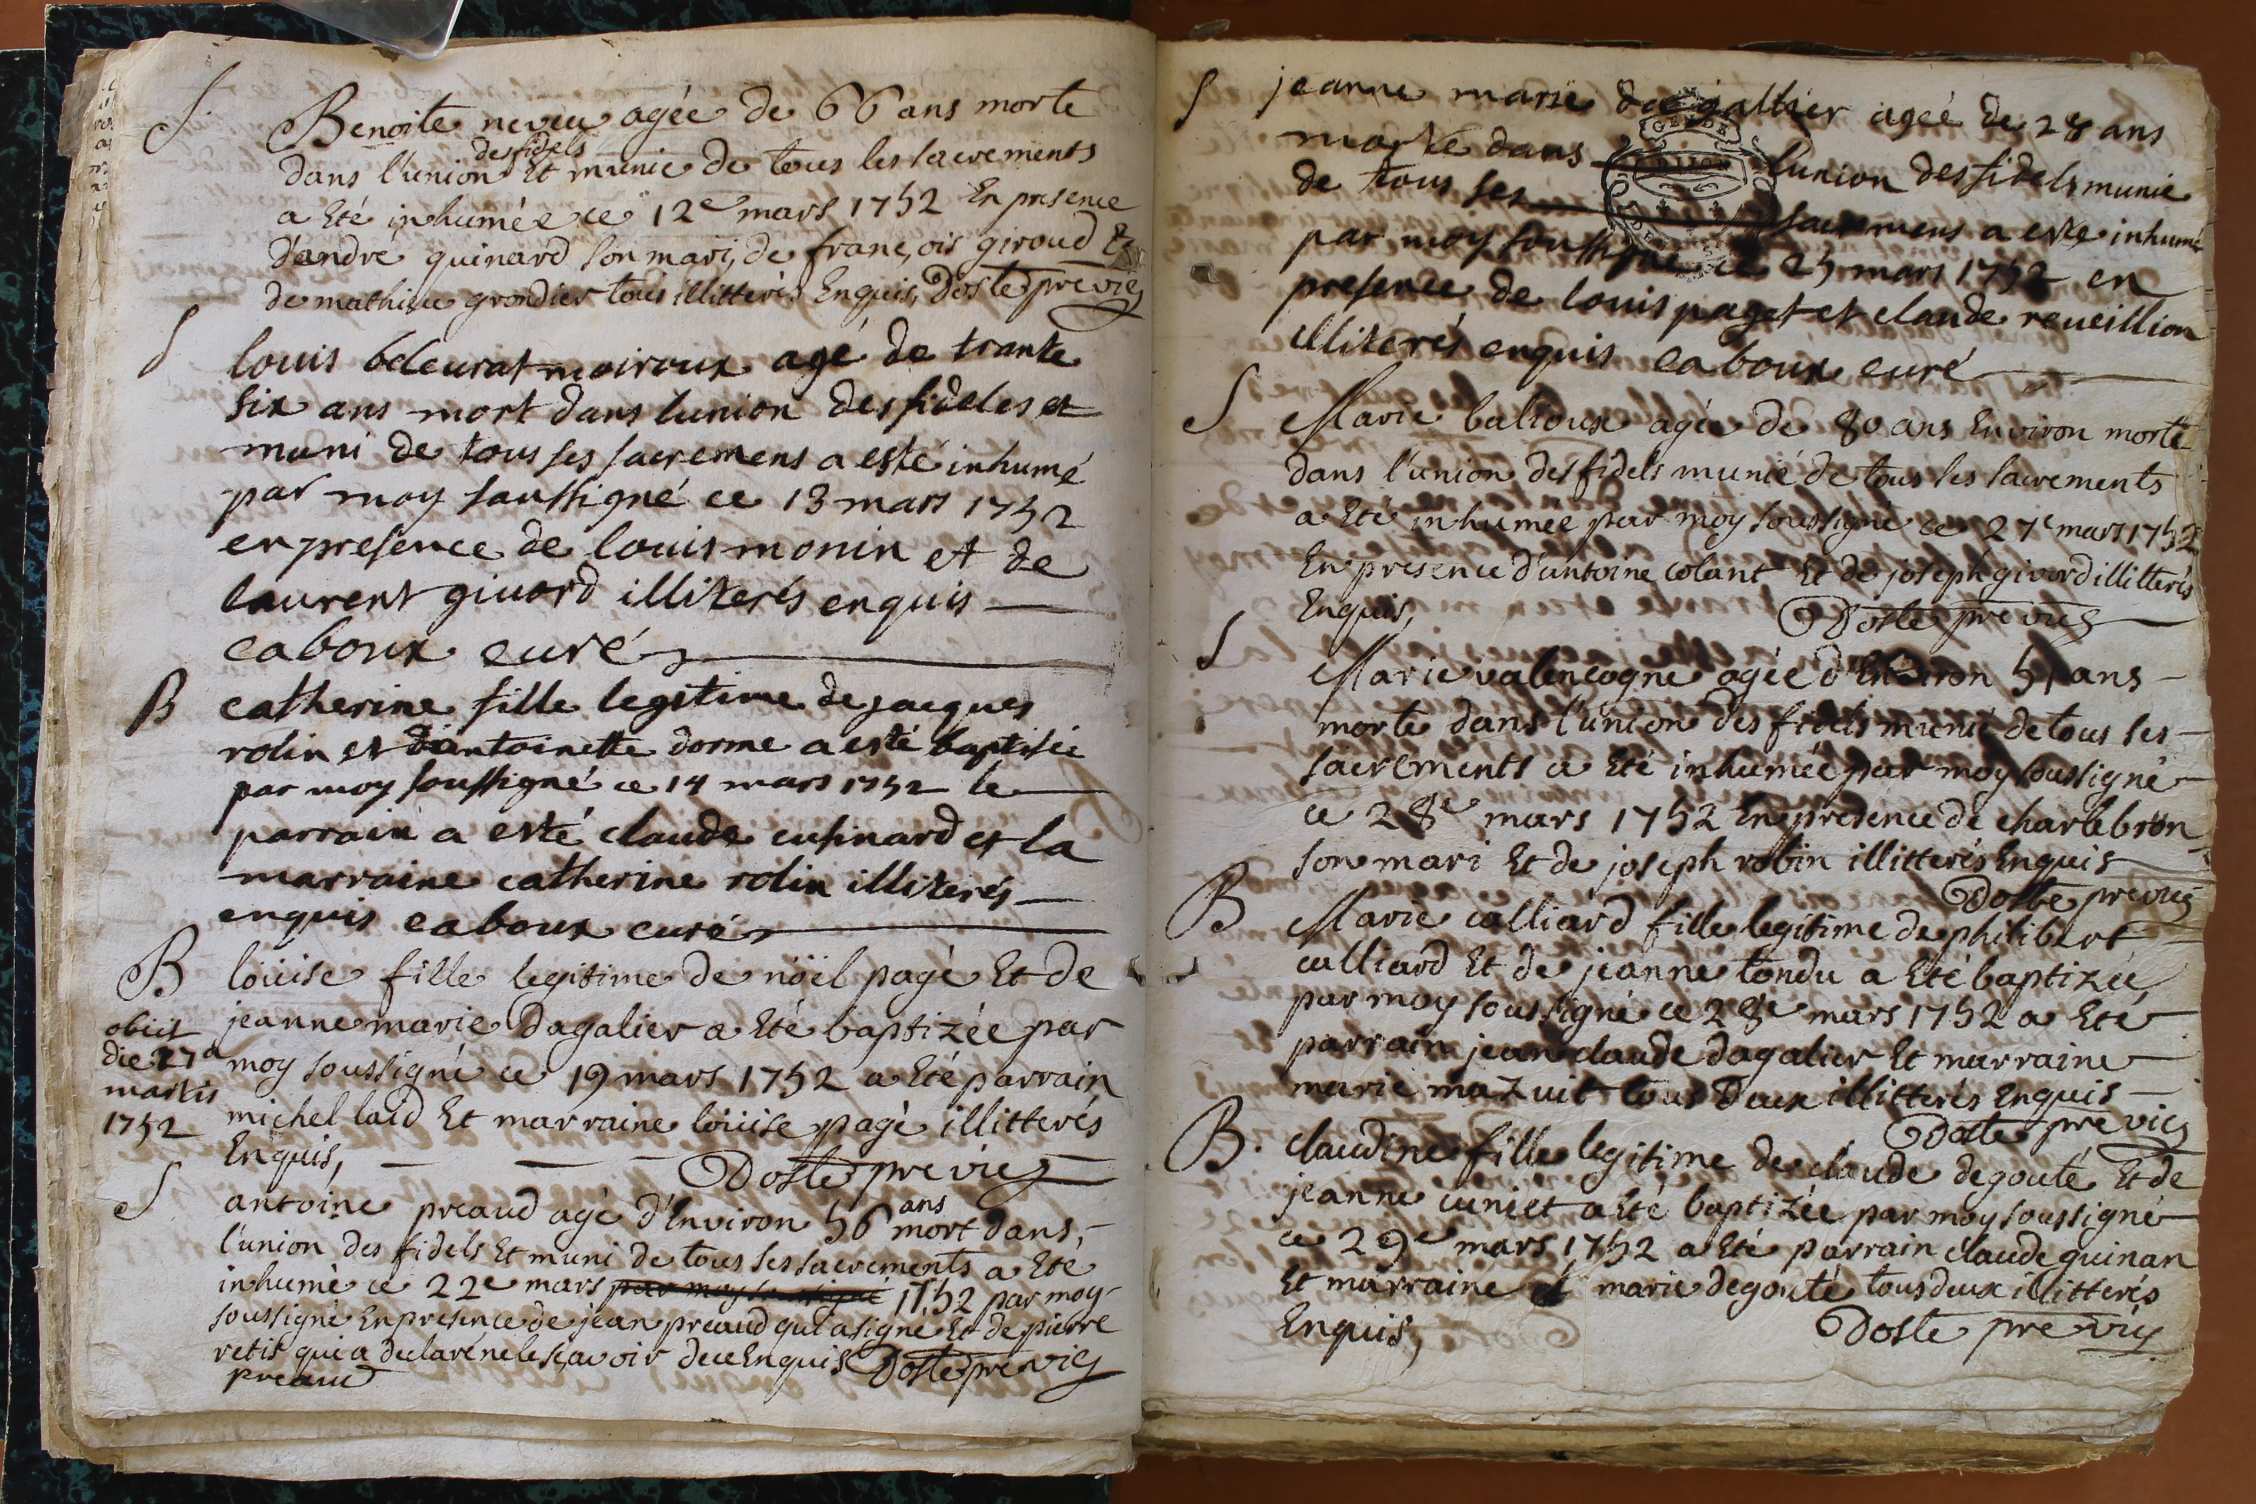 S. Benoite neveu agée de 66 ans morte
des fidels
dans l'union Et munie de tous les sacrements
a Eté inhumée ce 12e mars 1752 En presence
d'andré guinard son mari, de françois giroud &
de mathieu grondier tous illitterés Enquis, Doste pre vic
S louis beleurat moiroux agé de trante
six ans mort dans lunion des fideles et
muni de tous ses sacremens a esté inhumé
par moy soussigné ce 13 mars 1752
en presence de louis monin et de
laurent givord illiterés enquis
caboux curé
B catherine fille legitime de jacques
rolin et d'antoinette dorme a esté baptisée
par moy soussigné ce 14 mars 1752 le
parrain a esté claude cuhinard et la
marraine catherine rolin illiterés
enquis caboux curé
B loüise fille legitime de nöel pagé Et de
jeanne marie Dagalier a Eté baptizée par
moy soussigné ce 19 mars 1752 a Eté parrain
michel laid Et marraine loüise pagé illitterés
Enquis, Doste pre vic
obiit
die 27a
martis
1752
S antoine preaud agé d'Environ 56 ans mort dans
l'union des fidels Et muni de tous ses sacrements a Eté
inhumé ce 22e mars par moy soussigné 1752 par moy
soussigné En presence de jean preaud qui a signé Et de pierre
retis qui a declaré ne le sçavoir de ce Enquis Doste pre vic
preaud
S jeanne marie de galtier agée de 28 ans
morte dans l'union des fidels munie
de tous ses sacremens a este inhumé
par moy soussigné ce 25 mars 1752 en
presence de louis paget et claude reueillion
illiterés enquis caboux curé
S Marie balioux agée de 80 ans Environ morte
dans l'union des fidels munie de tous ses sacrements
a Eté inhumée par moy soussigné ce 27e mars 1752
En presence d'antoine colant Et de joseph givord illitterés
Enquis, Doste pre vic
S Marie valencogne agée d'Environ 51 ans
morte dans l'union des fidels munie de tous ses
sacrements a Eté inhumée par moy soussigné
ce 28e mars 1752 En presence de charle bron
son mari Et de joseph robin illitterés Enquis
Doste pre vic
B Marie calliard fille legitime de philibert
calliard Et de jeanne tondu a Eté baptizée
par moy soussigné ce 28e mars 1752 a Eté
parrain jean claude dagalier Et marraine
marie mazuit tous Deux illitterés Enquis
Doste pre vic
B. claudine fille legitime de claude degoute Et de
jeanne cuniet a Eté baptizée par moy soussigné
ce 29e mars 1752 a Eté parrain claude guinan
Et marraine marie degoute tous deux illitterés
Enquis, Doste pre vic